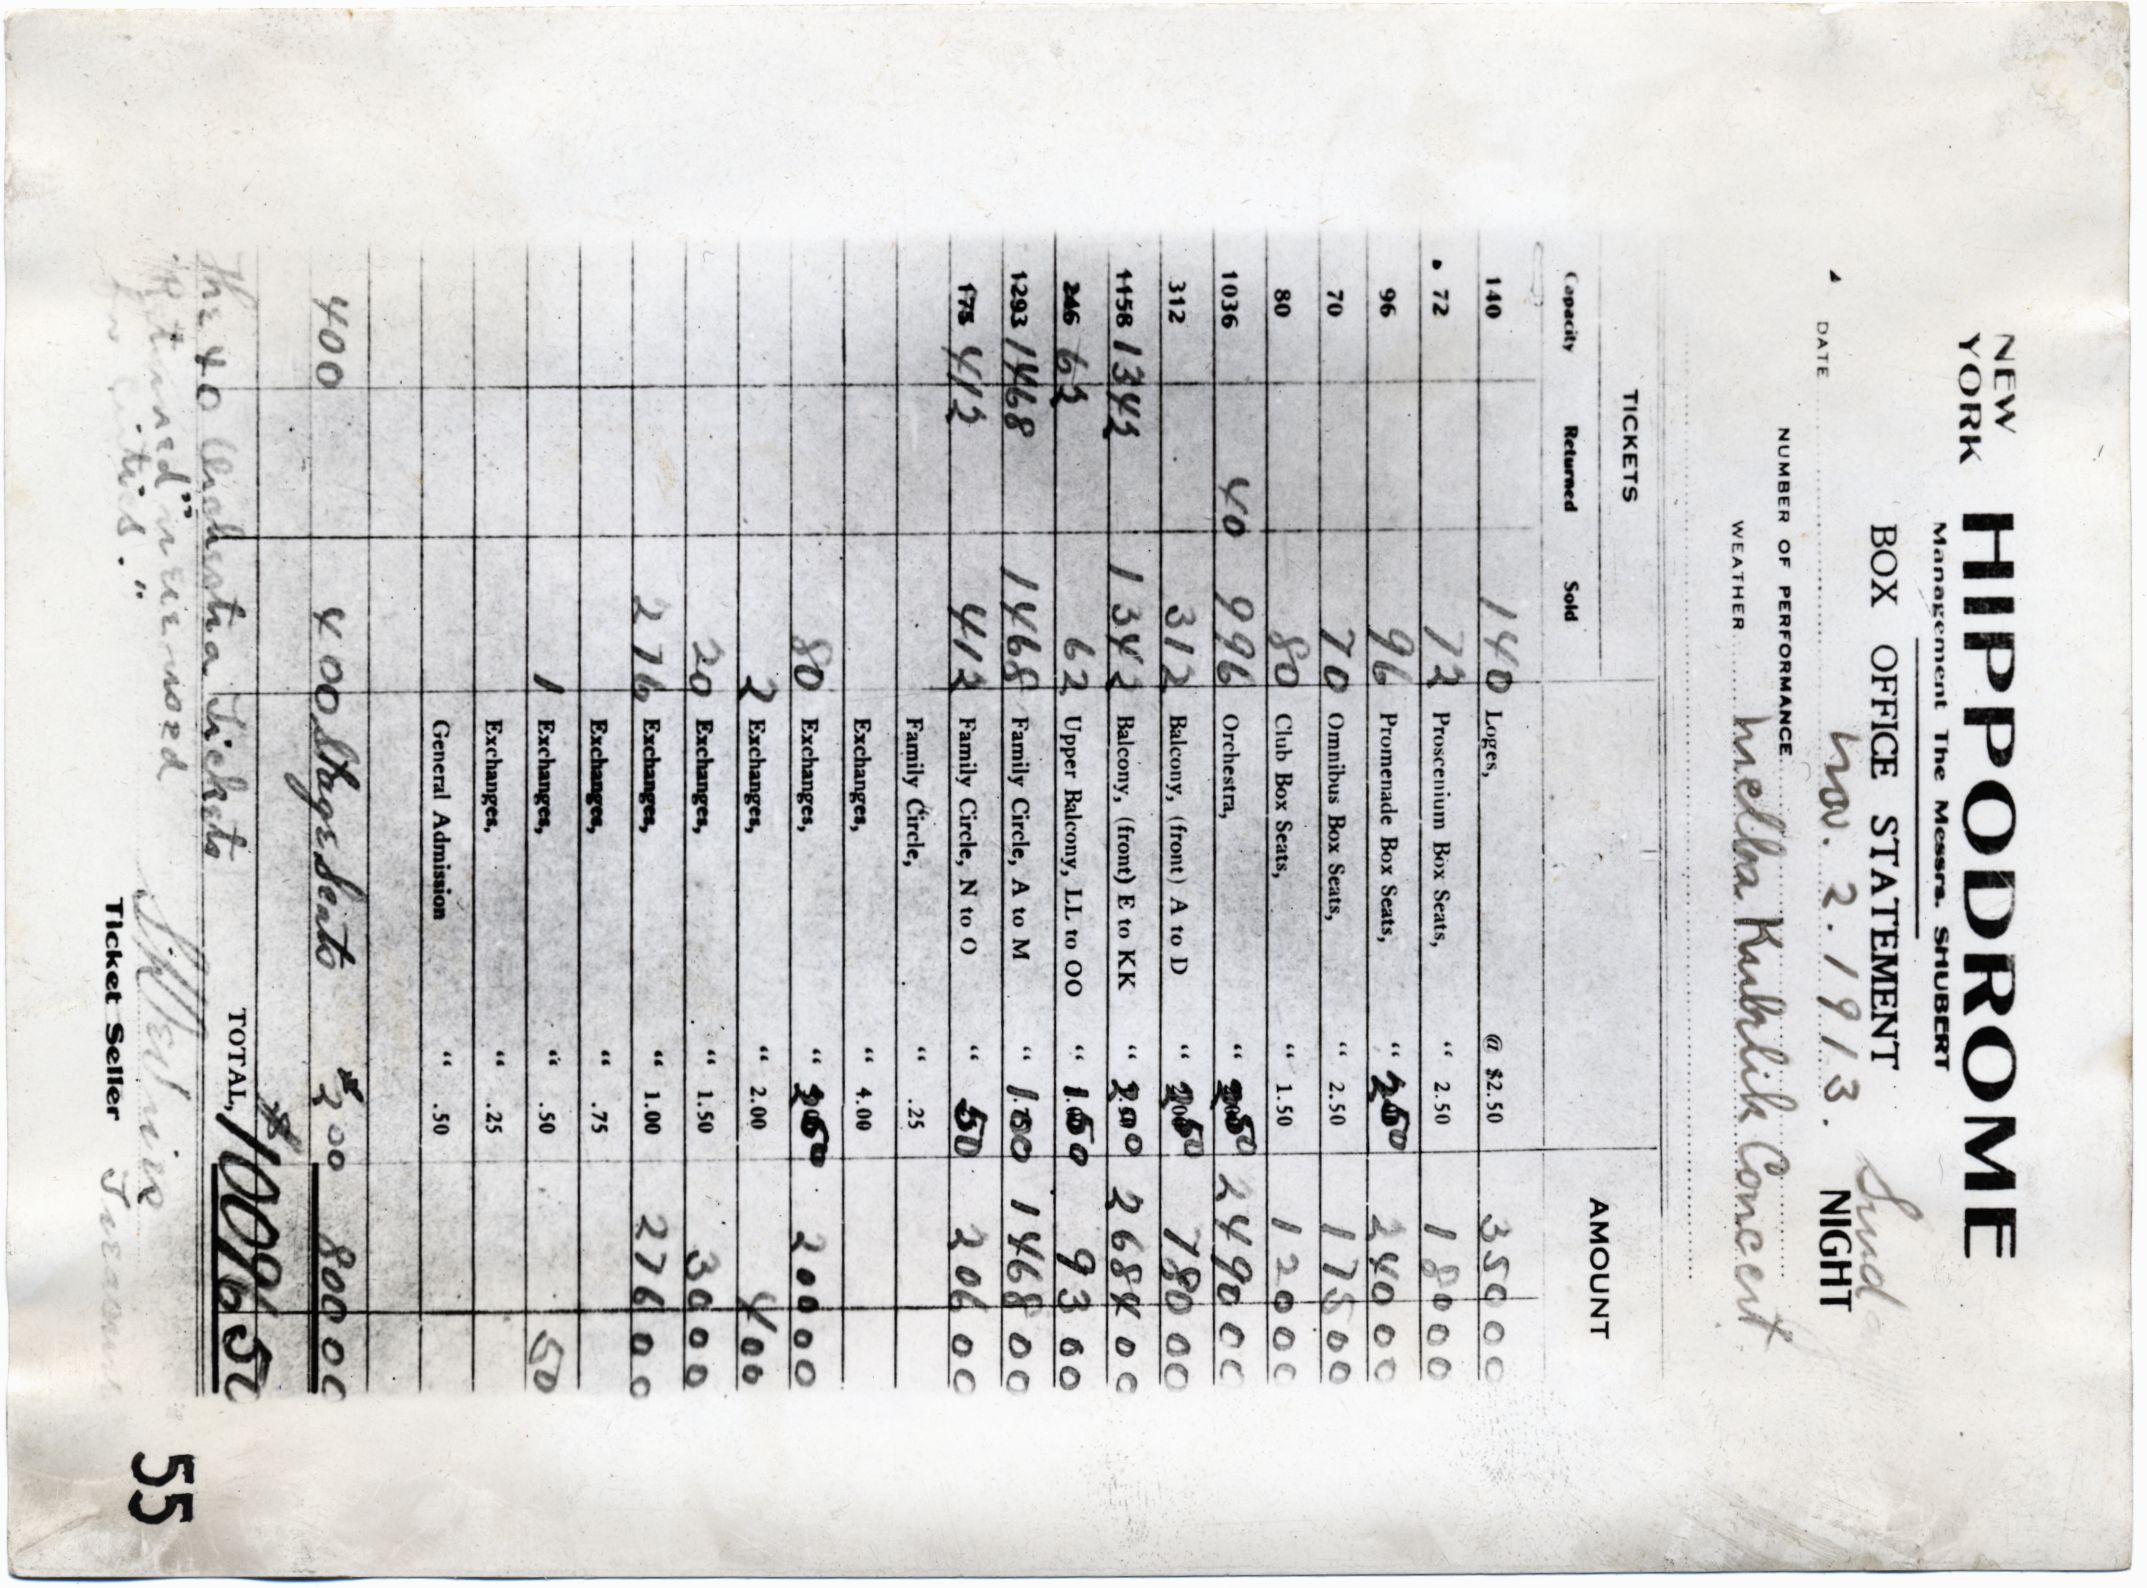 NEW YORK HIPPODROME
Management The Messrs. SHUBERT
BOX OFFICE STATEMENT
Sund
DATE Nov. 2. 1913. NIGHT
NUMBER OF PERFORMANCE
WEATHER Melba Kubelik Concert
TICKETS AMOUNT
Capacity Returned Sold
140 140 Loges, @ $2.50 350 00
72 72 Proscenium Box Seats, " 2.50 180 00
96 96 Promenade Box Seats, " 250 240 00
70 70 Omnibus Box Seats, " 2.50 175 00
80 80 Club Box Seats, " 1.50 120 00
1036 40 996 Orchestra, " 250 2490 00
312 312 Balcony, (front) A to D " 250 780 00
1158 1342 1342 Balcony, (front) E to KK " 200 2684 00
246 62 62 Upper Balcony, LL to OO " 1.50 93 00
1293 1468 1468 Family Circle, A to M " 1.00 1468 00
175 412 412 Family Circle, N to O " 50 206 00
Family Circle, " .25
Exchanges, " 4.00
80 Exchanges, " 250 200 00
2 Exchanges, " 2.00 4 00
20 Exchanges, " 1.50 30 00
276 Exchanges, " 1.00 276 00
Exchanges, " .75
1 Exchanges, " .50 50
Exchanges, " .25
General Admission " .50
400 400 Stage Seats $2 00 800 00
TOTAL, $10096 50
The 40 Orchestra Tickets
"Returned"
Ticket Seller
55